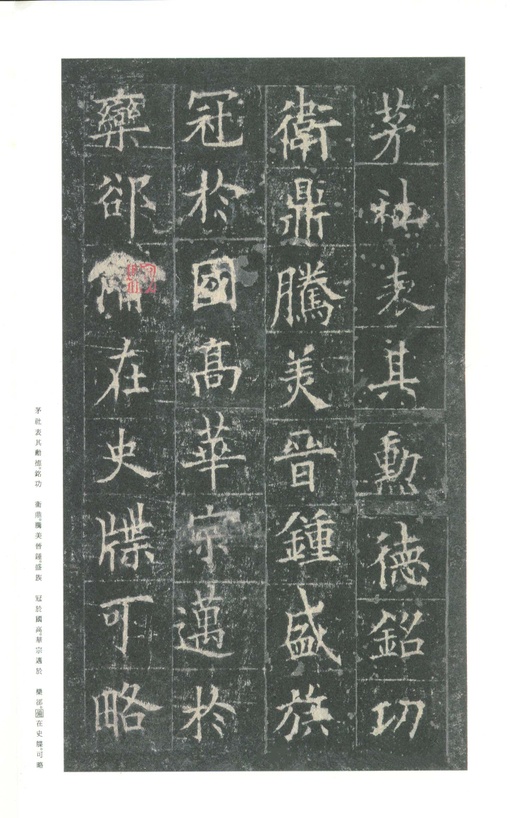 茅社表其勲德銘功
衛鼎騰美晉鍾盛族
冠於國高華宗邁於
欒郤在史牒可略
茅社表其勳德。銘功 衛鼎。騰美晉鐘。盛族 冠於國高。華宗邁於 欒郤。備在史牒。可略